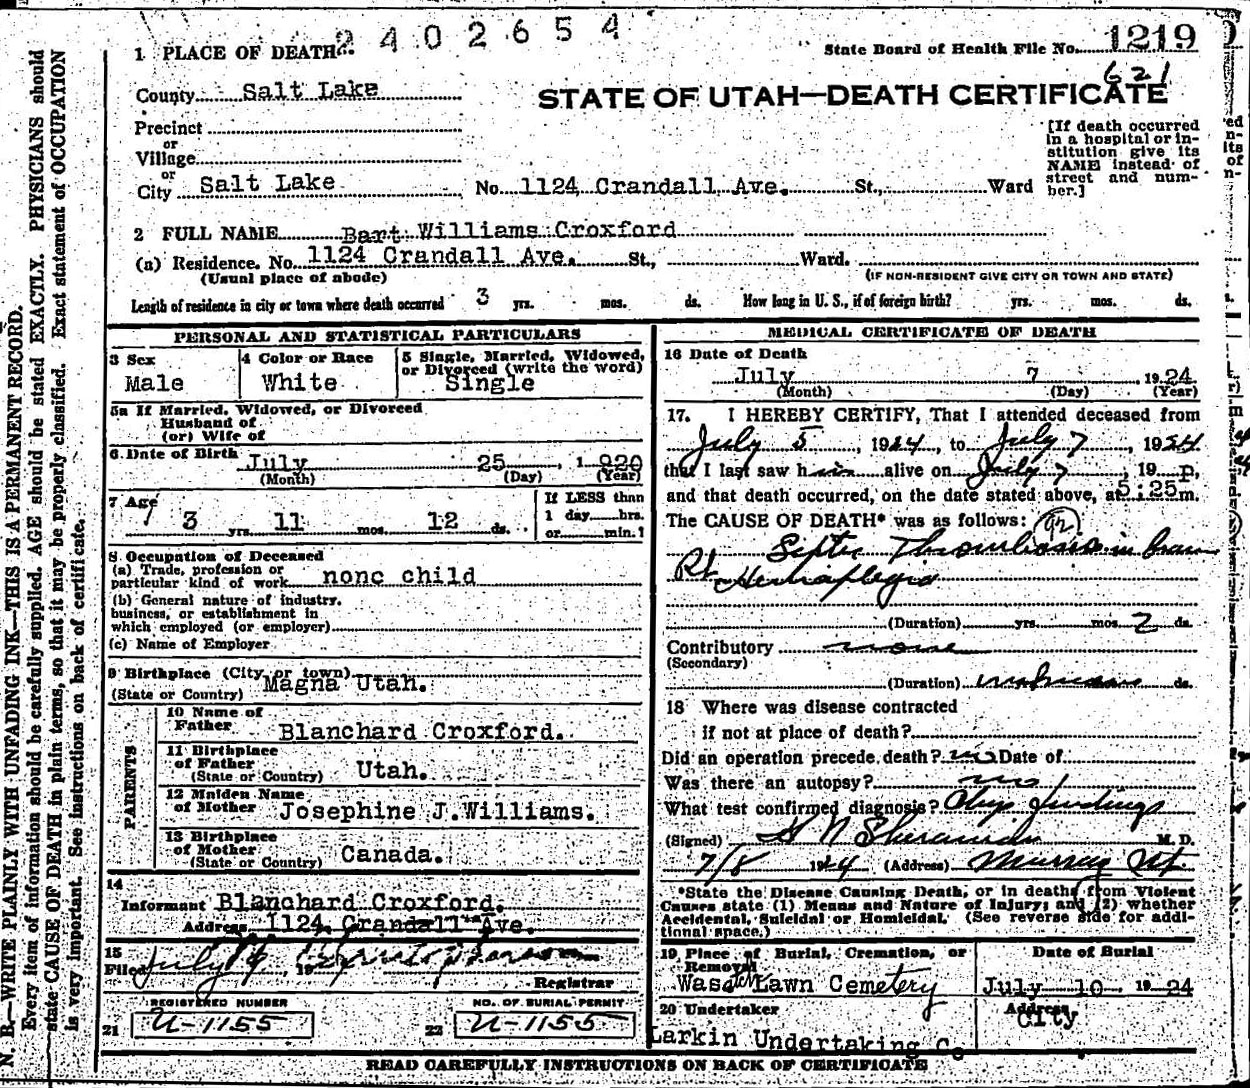 2402654
1 PLACE OF DEATH
State Board of Health File No. 1219
621
County Salt Lake
STATE OF UTAH—DEATH CERTIFICATE
Precinct
or
Village
or
City Salt Lake No. 1124 Crandall Ave. St., Ward
[If death occurred
in a hospital or in-
stitution give its
NAME instead of
street and num-
ber.]
2 FULL NAME Bart Williams Croxford
(a) Residence. No. 1124 Crandall Ave. St., Ward.
(Usual place of abode) (IF NON-RESIDENT GIVE CITY OR TOWN AND STATE)
Length of residence in city or town where death occurred 3 yrs. mos. ds. How long in U. S., if of foreign birth? yrs. mos. ds.
PERSONAL AND STATISTICAL PARTICULARS
3 Sex
Male
4 Color or Race
White
5 Single, Married, Widowed,
or Divorced (write the word)
Single
5a If Married, Widowed, or Divorced
Husband of
(or) Wife of
6 Date of Birth July 25, 1920
(Month) (Day) (Year)
7 Age
3 yrs. 11 mos. 12 ds.
If LESS than
1 day hrs.
or min.
8 Occupation of Deceased
(a) Trade, profession or
particular kind of work none child
(b) General nature of industry,
business, or establishment in
which employed (or employer)
(c) Name of Employer
9 Birthplace (City or town)
(State or Country) Magna Utah.
PARENTS
10 Name of
Father Blanchard Croxford.
11 Birthplace
of Father
(State or Country) Utah.
12 Maiden Name
of Mother Josephine J.Williams.
13 Birthplace
of Mother
(State or Country) Canada.
14
Informant Blanchard Croxford.
Address 1124 Crandall Ave.
15
Filed July , 19
Registrar
REGISTERED NUMBER
21 U-1155
NO. OF BURIAL PERMIT
22 U-1155
MEDICAL CERTIFICATE OF DEATH
16 Date of Death
July 7 1924
(Month) (Day) (Year)
17. I HEREBY CERTIFY, That I attended deceased from
July 5, 1924, to July 7, 1924
that I last saw him alive on July 7, 19 P.
and that death occurred, on the date stated above, at 5:25 m.
The CAUSE OF DEATH* was as follows:
Septic Thrombosis in brain
Rt Hemiaplegia
(Duration) yrs. mos. 2 ds.
Contributory none
(Secondary)
(Duration) unknown ds.
18 Where was disease contracted
if not at place of death?
Did an operation precede death? no Date of
Was there an autopsy? no
What test confirmed diagnosis? findings
(Signed) M. D.
7/8 1924 (Address) Murray Ut
*State the Disease Causing Death, or in deaths from Violent
Causes state (1) Means and Nature of Injury; and (2) whether
Accidental, Suicidal or Homicidal. (See reverse side for addi-
tional space.)
19 Place of Burial, Cremation, or
Removal
Wasatch Lawn Cemetery
Date of Burial
July 10, 1924
20 Undertaker
Larkin Undertaking Co
Address
City
READ CAREFULLY INSTRUCTIONS ON BACK OF CERTIFICATE
N. B.—WRITE PLAINLY WITH UNFADING INK—THIS IS A PERMANENT RECORD.
Every item of information should be carefully supplied. AGE should be stated EXACTLY. PHYSICIANS should
state CAUSE OF DEATH in plain terms, so that it may be properly classified. Exact statement of OCCUPATION
is very important. See instructions on back of certificate.